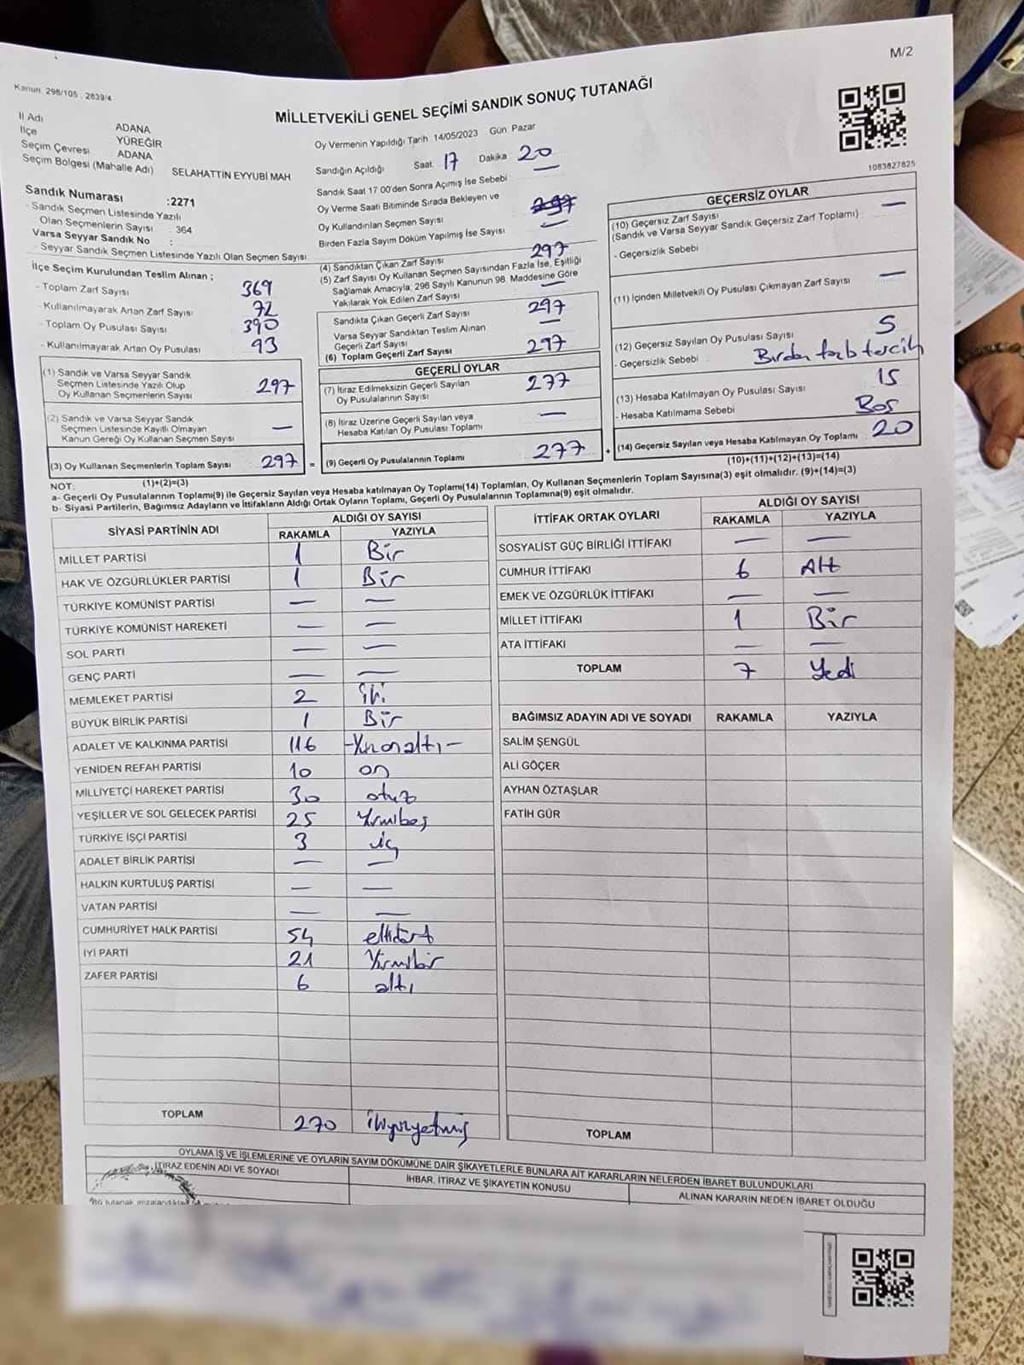 M/2
Kanun: 298/105 , 2839/4
MİLLETVEKİLİ GENEL SEÇİMİ SANDIK SONUÇ TUTANAĞI
1083827825
İl Adı ADANA
İlçe YÜREĞİR
Seçim Çevresi ADANA
Seçim Bölgesi (Mahalle Adı) SELAHATTİN EYYUBİ MAH
Sandık Numarası :2271
- Sandık Seçmen Listesinde Yazılı
Olan Seçmenlerin Sayısı : 364
Varsa Seyyar Sandık No :
- Seyyar Sandık Seçmen Listesinde Yazılı Olan Seçmen Sayısı
İlçe Seçim Kurulundan Teslim Alınan ;
- Toplam Zarf Sayısı 369
- Kullanılmayarak Artan Zarf Sayısı 72
- Toplam Oy Pusulası Sayısı 390
- Kullanılmayarak Artan Oy Pusulası 93
(1) Sandık ve Varsa Seyyar Sandık
Seçmen Listesinde Yazılı Olup
Oy Kullanan Seçmenlerin Sayısı 297
(2) Sandık ve Varsa Seyyar Sandık
Seçmen Listesinde Kayıtlı Olmayan
Kanun Gereği Oy Kullanan Seçmen Sayısı —
(3) Oy Kullanan Seçmenlerin Toplam Sayısı 297 =
(1)+(2)=(3)
Oy Vermenin Yapıldığı Tarih 14/05/2023 Gün Pazar
Sandığın Açıldığı Saat 17 Dakika 20
Sandık Saat 17 00'den Sonra Açımış İse Sebebi —
Oy Verme Saati Bitiminde Sırada Bekleyen ve
Oy Kullandırılan Seçmen Sayısı 297
Birden Fazla Sayım Döküm Yapılmış İse Sayısı —
(4) Sandıktan Çıkan Zarf Sayısı 297
(5) Zarf Sayısı Oy Kullanan Seçmen Sayısından Fazla İse, Eşitliği
Sağlamak Amacıyla, 298 Sayılı Kanunun 98. Maddesine Göre
Yakılarak Yok Edilen Zarf Sayısı —
Sandıkta Çıkan Geçerli Zarf Sayısı 297
Varsa Seyyar Sandıktan Teslim Alınan
Geçerli Zarf Sayısı —
(6) Toplam Geçerli Zarf Sayısı 297
GEÇERLİ OYLAR
(7) İtiraz Edilmeksizin Geçerli Sayılan
Oy Pusulalarının Sayısı 277
(8) İtiraz Üzerine Geçerli Sayılan veya
Hesaba Katılan Oy Pusulası Toplamı —
(9) Geçerli Oy Pusulalarının Toplamı 277 +
GEÇERSİZ OYLAR
(10) Geçersiz Zarf Sayısı —
(Sandık ve Varsa Seyyar Sandık Geçersiz Zarf Toplamı)
- Geçersizlik Sebebi
(11) İçinden Milletvekili Oy Pusulası Çıkmayan Zarf Sayısı —
(12) Geçersiz Sayılan Oy Pusulası Sayısı 5
- Geçersizlik Sebebi Birden fazla tercih
(13) Hesaba Katılmayan Oy Pusulası Sayısı 15
- Hesaba Katılmama Sebebi Boş
(14) Geçersiz Sayılan veya Hesaba Katılmayan Oy Toplamı 20
(10)+(11)+(12)+(13)=(14)
NOT:
a- Geçerli Oy Pusulalarının Toplamı(9) ile Geçersiz Sayılan veya Hesaba katılmayan Oy Toplamı(14) Toplamları, Oy Kullanan Seçmenlerin Toplam Sayısına(3) eşit olmalıdır. (9)+(14)=(3)
b- Siyasi Partilerin, Bağımsız Adayların ve İttifakların Aldığı Ortak Oyların Toplamı, Geçerli Oy Pusulalarının Toplamına(9) eşit olmalıdır.
SİYASİ PARTİNİN ADI ALDIĞI OY SAYISI
RAKAMLA YAZIYLA
MİLLET PARTİSİ 1 Bir
HAK VE ÖZGÜRLÜKLER PARTİSİ 1 Bir
TÜRKİYE KOMÜNİST PARTİSİ — —
TÜRKİYE KOMÜNİST HAREKETİ — —
SOL PARTİ — —
GENÇ PARTİ — —
MEMLEKET PARTİSİ 2 iki
BÜYÜK BİRLİK PARTİSİ 1 Bir
ADALET VE KALKINMA PARTİSİ 116 -Yüzonaltı-
YENİDEN REFAH PARTİSİ 10 on
MİLLİYETÇİ HAREKET PARTİSİ 30 otuz
YEŞİLLER VE SOL GELECEK PARTİSİ 25 Yirmibeş
TÜRKİYE İŞÇİ PARTİSİ 3 üç
ADALET BİRLİK PARTİSİ — —
HALKIN KURTULUŞ PARTİSİ — —
VATAN PARTİSİ — —
CUMHURİYET HALK PARTİSİ 54 ellidört
İYİ PARTİ 21 Yirmibir
ZAFER PARTİSİ 6 altı
TOPLAM 270 ikiyüzyetmiş
İTTİFAK ORTAK OYLARI ALDIĞI OY SAYISI
RAKAMLA YAZIYLA
SOSYALİST GÜÇ BİRLİĞİ İTTİFAKI — —
CUMHUR İTTİFAKI 6 Altı
EMEK VE ÖZGÜRLÜK İTTİFAKI — —
MİLLET İTTİFAKI 1 Bir
ATA İTTİFAKI — —
TOPLAM 7 Yedi
BAĞIMSIZ ADAYIN ADI VE SOYADI RAKAMLA YAZIYLA
SALİM ŞENGÜL
ALİ GÖÇER
AYHAN ÖZTAŞLAR
FATİH GÜR
TOPLAM
OYLAMA İŞ VE İŞLEMLERİNE VE OYLARIN SAYIM DÖKÜMÜNE DAİR ŞİKAYETLERLE BUNLARA AİT KARARLARIN NELERDEN İBARET BULUNDUKLARI
İTİRAZ EDENİN ADI VE SOYADI
İHBAR, İTİRAZ VE ŞİKAYETİN KONUSU
ALINAN KARARIN NEDEN İBARET OLDUĞU